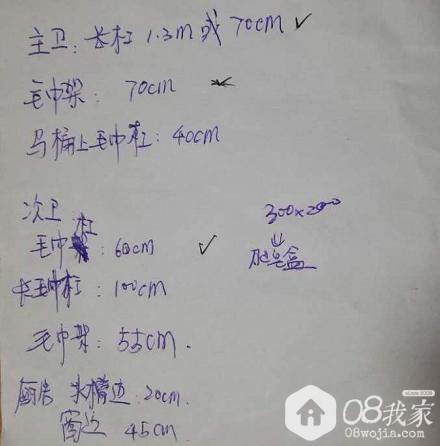 主卫：长杠 1.3m 或 70cm ✓
毛巾架： 70cm
马桶上毛巾杠：40cm
次卫
毛巾杠：60cm ✓
300×200
肥皂盒
长毛巾杠：100cm
毛巾架：55cm.
厨房 水槽边：20cm.
窗边 45cm
08我家
08wojia.com
since 2008